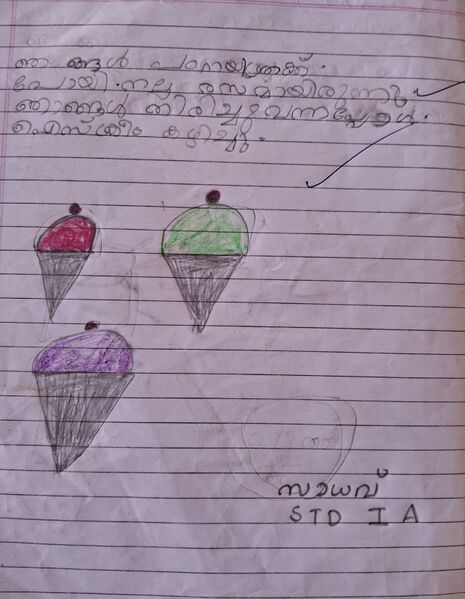 ഞങ്ങൾ പഠനയാത്രക്ക്.
പോയി. നല്ല രസമായിരുന്നു
ഞങ്ങൾ തിരിച്ചു വന്നപ്പോൾ.
ഐസ്ക്രീം കഴിച്ചു.
സാധവ്
STD I A